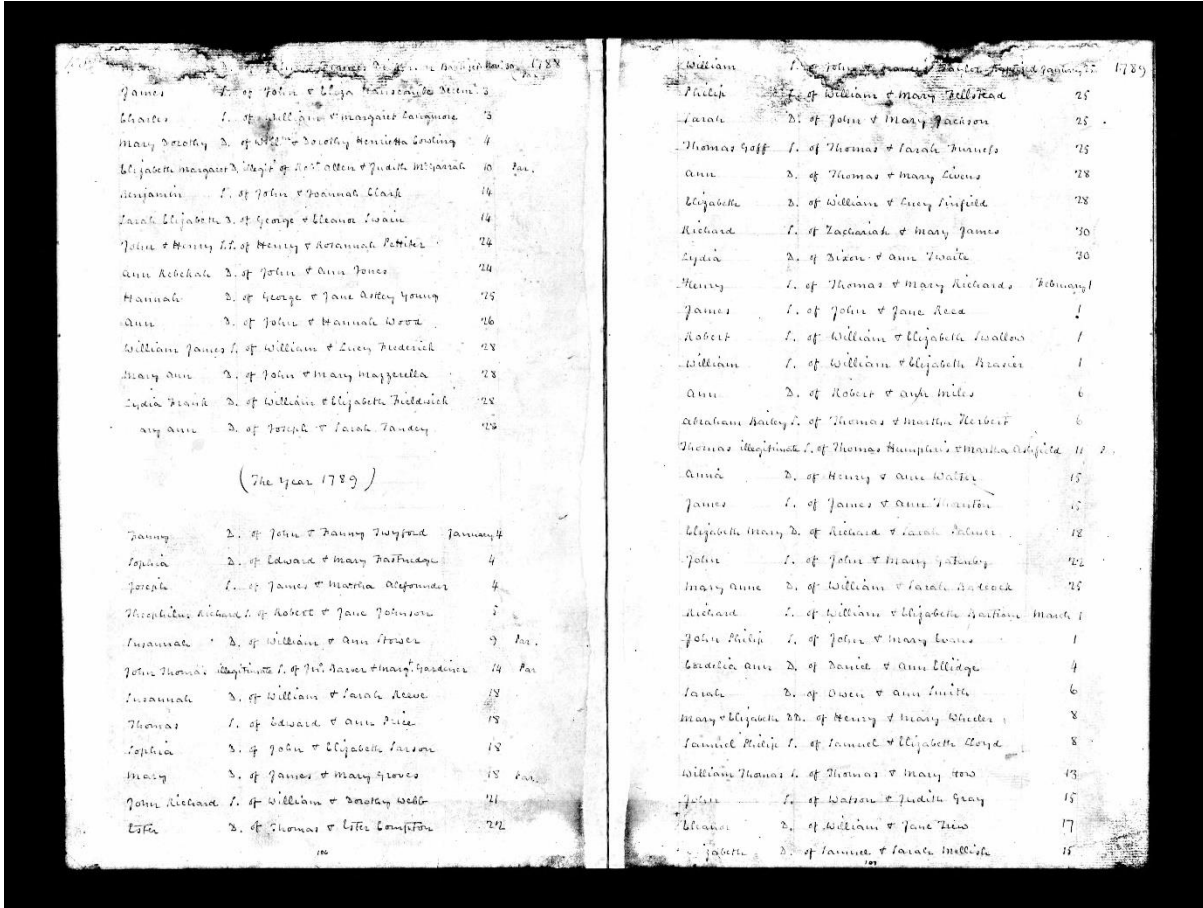 D. of 1788
James S. of John & Eliza Decem. 3
Charles S. of William & Margaret Langmore 3
Mary Dorothy D. of Willm & Dorothy Henrietta Cowling 4
Elizabeth Margaret D. illegit. of Robt Allen & Judith McGarrah 10 Par.
Benjamin S. of John & Joannah Clark 14
Sarah Elizabeth D. of George & Eleanor Swain 14
John & Henry S.S. of Henry & Rosannah Pettifer 24
Ann Rebekah D. of John & Ann Jones 24
Hannah D. of George & Jane Astley Young 25
Ann D. of John & Hannah Wood 26
William James S. of William & Lucy Frederick 28
Mary Ann D. of John & Mary Mazzerella 28
Lydia Frank D. of William & Elizabeth Fieldwich 28
ary Ann D. of Joseph & Sarah Tandey 28
(The Year 1789)
Fanny D. of John & Fanny Twyford January 4
Sophia D. of Edward & Mary Eastridge 4
Joseph S. of James & Martha Alefounder 4
Theophilus Richard S. of Robert & Jane Johnson 5
Susannah D. of William & Ann Stower 9 Par.
John Thomas illegitimate S. of Jno. & Margt. Gardiner 14 Par
Susannah D. of William & Sarah Reeve 18
Thomas S. of Edward & Ann Price 18
Sophia D. of John & Elizabeth Larson 18
Mary D. of James & Mary Groves 18 Par.
John Richard S. of William & Dorothy Webb 21
Ester D. of Thomas & Ester Compton 22
106
William S. of John & Taylor January 25 1789
Philip S. of William & Mary Fellstead 25
Sarah D. of John & Mary Jackson 25
Thomas Goff S. of Thomas & Sarah Furness 25
Ann D. of Thomas & Mary Livens 28
Elizabeth D. of William & Lucy Sinfield 28
Richard S. of Zachariah & Mary James 30
Lydia D. of Dixon & Ann Twaite 30
Henry S. of Thomas & Mary Richards February 1
James S. of John & Jane Reed 1
Robert S. of William & Elizabeth Swallow 1
William S. of William & Elizabeth Brasier 1
Ann D. of Robert & Ann Miles 6
Abraham Bailey S. of Thomas & Martha Herbert 6
Thomas illegitimate S. of Thomas Humphris & Martha Ashfield 11
Anna D. of Henry & Ann Walter 15
James S. of James & Ann Thornton 15
Elizabeth Mary D. of Richard & Sarah Palmer 18
John S. of John & Mary Gatenby 22
Mary Anne D. of William & Sarah Badcock 25
Richard S. of William & Elizabeth Bartram March 1
John Philip S. of John & Mary Evans 1
Cordelia Ann D. of Daniel & Ann Ellidge 4
Sarah D. of Owen & Ann Smith 6
Mary & Elizabeth DD. of Henry & Mary Wheeler 8
Samuel Philip S. of Samuel & Elizabeth Lloyd 8
William Thomas S. of Thomas & Mary How 13
John S. of Watson & Judith Gray 15
Eleanor D. of William & Jane Trew 17
zabeth D. of Samuel & Sarah Mellish 15
107